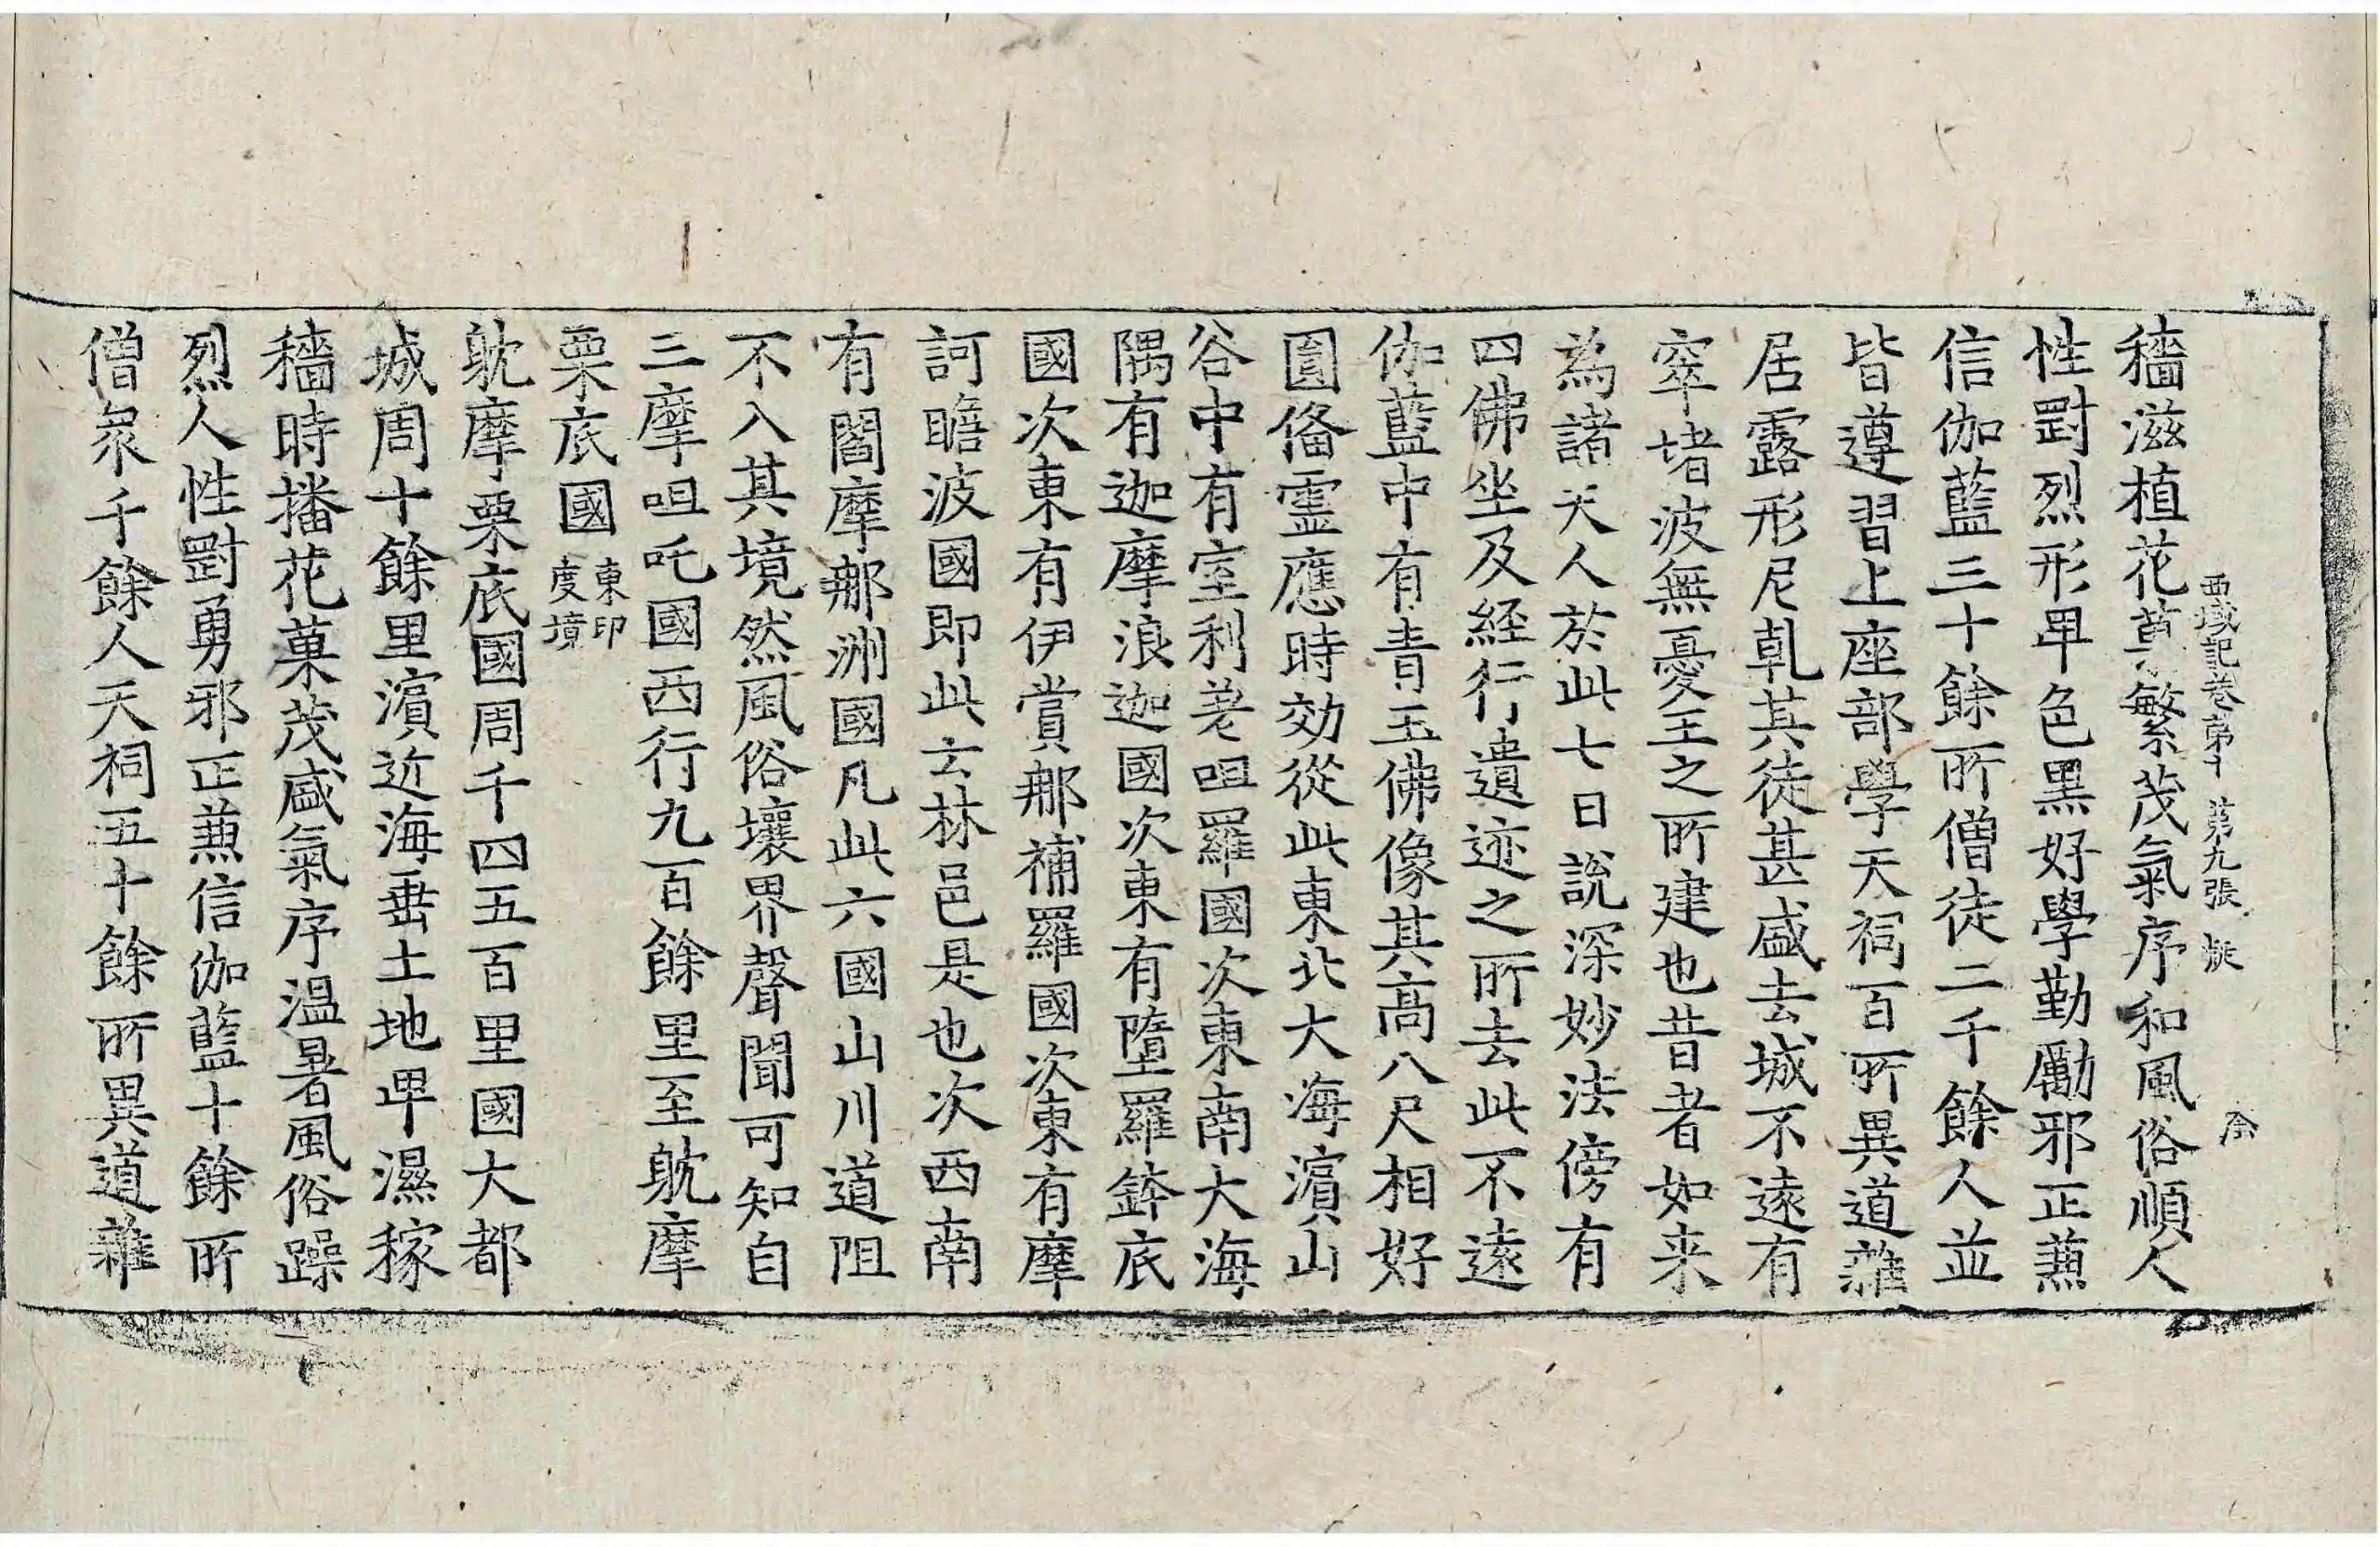 西域記卷第十 第九張
穡滋植花草繁茂氣序和風俗順人
性剛烈形卑色黑好學勤勵邪正兼
信伽藍三十餘所僧徒二千餘人並
皆遵習上座部學天祠百所異道雜
居露形尼乹其徒甚盛去城不遠有
窣堵波無憂王之所建也昔者如来
為諸天人於此七日說深妙法傍有
四佛坐及経行遺迹之所去此不遠
伽藍中有青玉佛像其高八尺相好
圓俻霊應時効從此東北大海濱山
谷中有室利差呾羅國次東南大海
隅有迦摩浪迦國次東有墮羅鉢底
國次東有伊賞那補羅國次東有摩
訶瞻波國即此云林邑是也次西南
有閻摩那洲國凡此六國山川道阻
不入其境然風俗壤界聲聞可知自
三摩呾吒國西行九百餘里至躭摩
栗底國東印度境
躭摩栗底國周千四五百里國大都
城周十餘里濱近海垂土地卑濕稼
穡時播花菓茂盛氣序温暑風俗躁
烈人性剛勇邪正兼信伽藍十餘所
僧衆千餘人天祠五十餘所異道雜